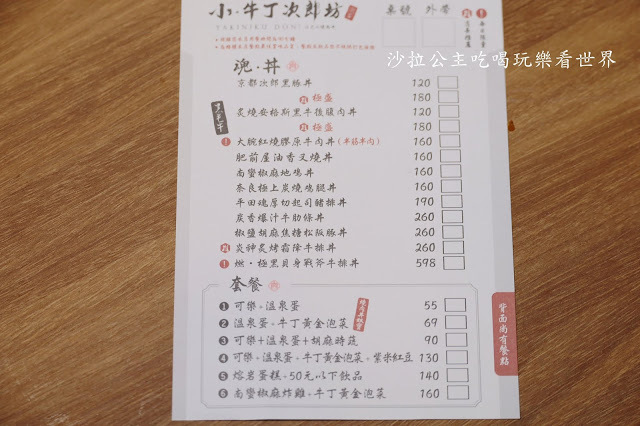 小·牛丁次郎坊
YAKINIKU DON!
桌號 外帶
沙拉公主吃喝玩樂看世界
魂·丼
京都次郎黑豚丼 120
極盛 180
炙燒安格斯黑牛後腹肉丼 120
極盛 180
大腕紅燒膠原牛肉丼(半筋半肉) 160
肥前屋油香叉燒丼 160
南蠻椒麻地鳴丼 160
奈良極上炭燒鳴腿丼 160
平田魂厚切起司豬排丼 190
炭香爆汁牛肋條丼 260
椒鹽胡麻焦糖松阪豚丼 260
炎神炙烤霜降牛排丼 260
燃·極黑貝身戰斧牛排丼 598
套餐
1 可樂+溫泉蛋 55
2 溫泉蛋+牛丁黃金泡菜 69
3 可樂+溫泉蛋+胡麻時蔬 90
4 可樂+溫泉蛋+牛丁黃金泡菜+葉米紅豆 130
5 熔岩蛋糕+50元以下飲品 140
6 南蠻椒麻炸雞+牛丁黃金泡菜 160
背面尚有餐點